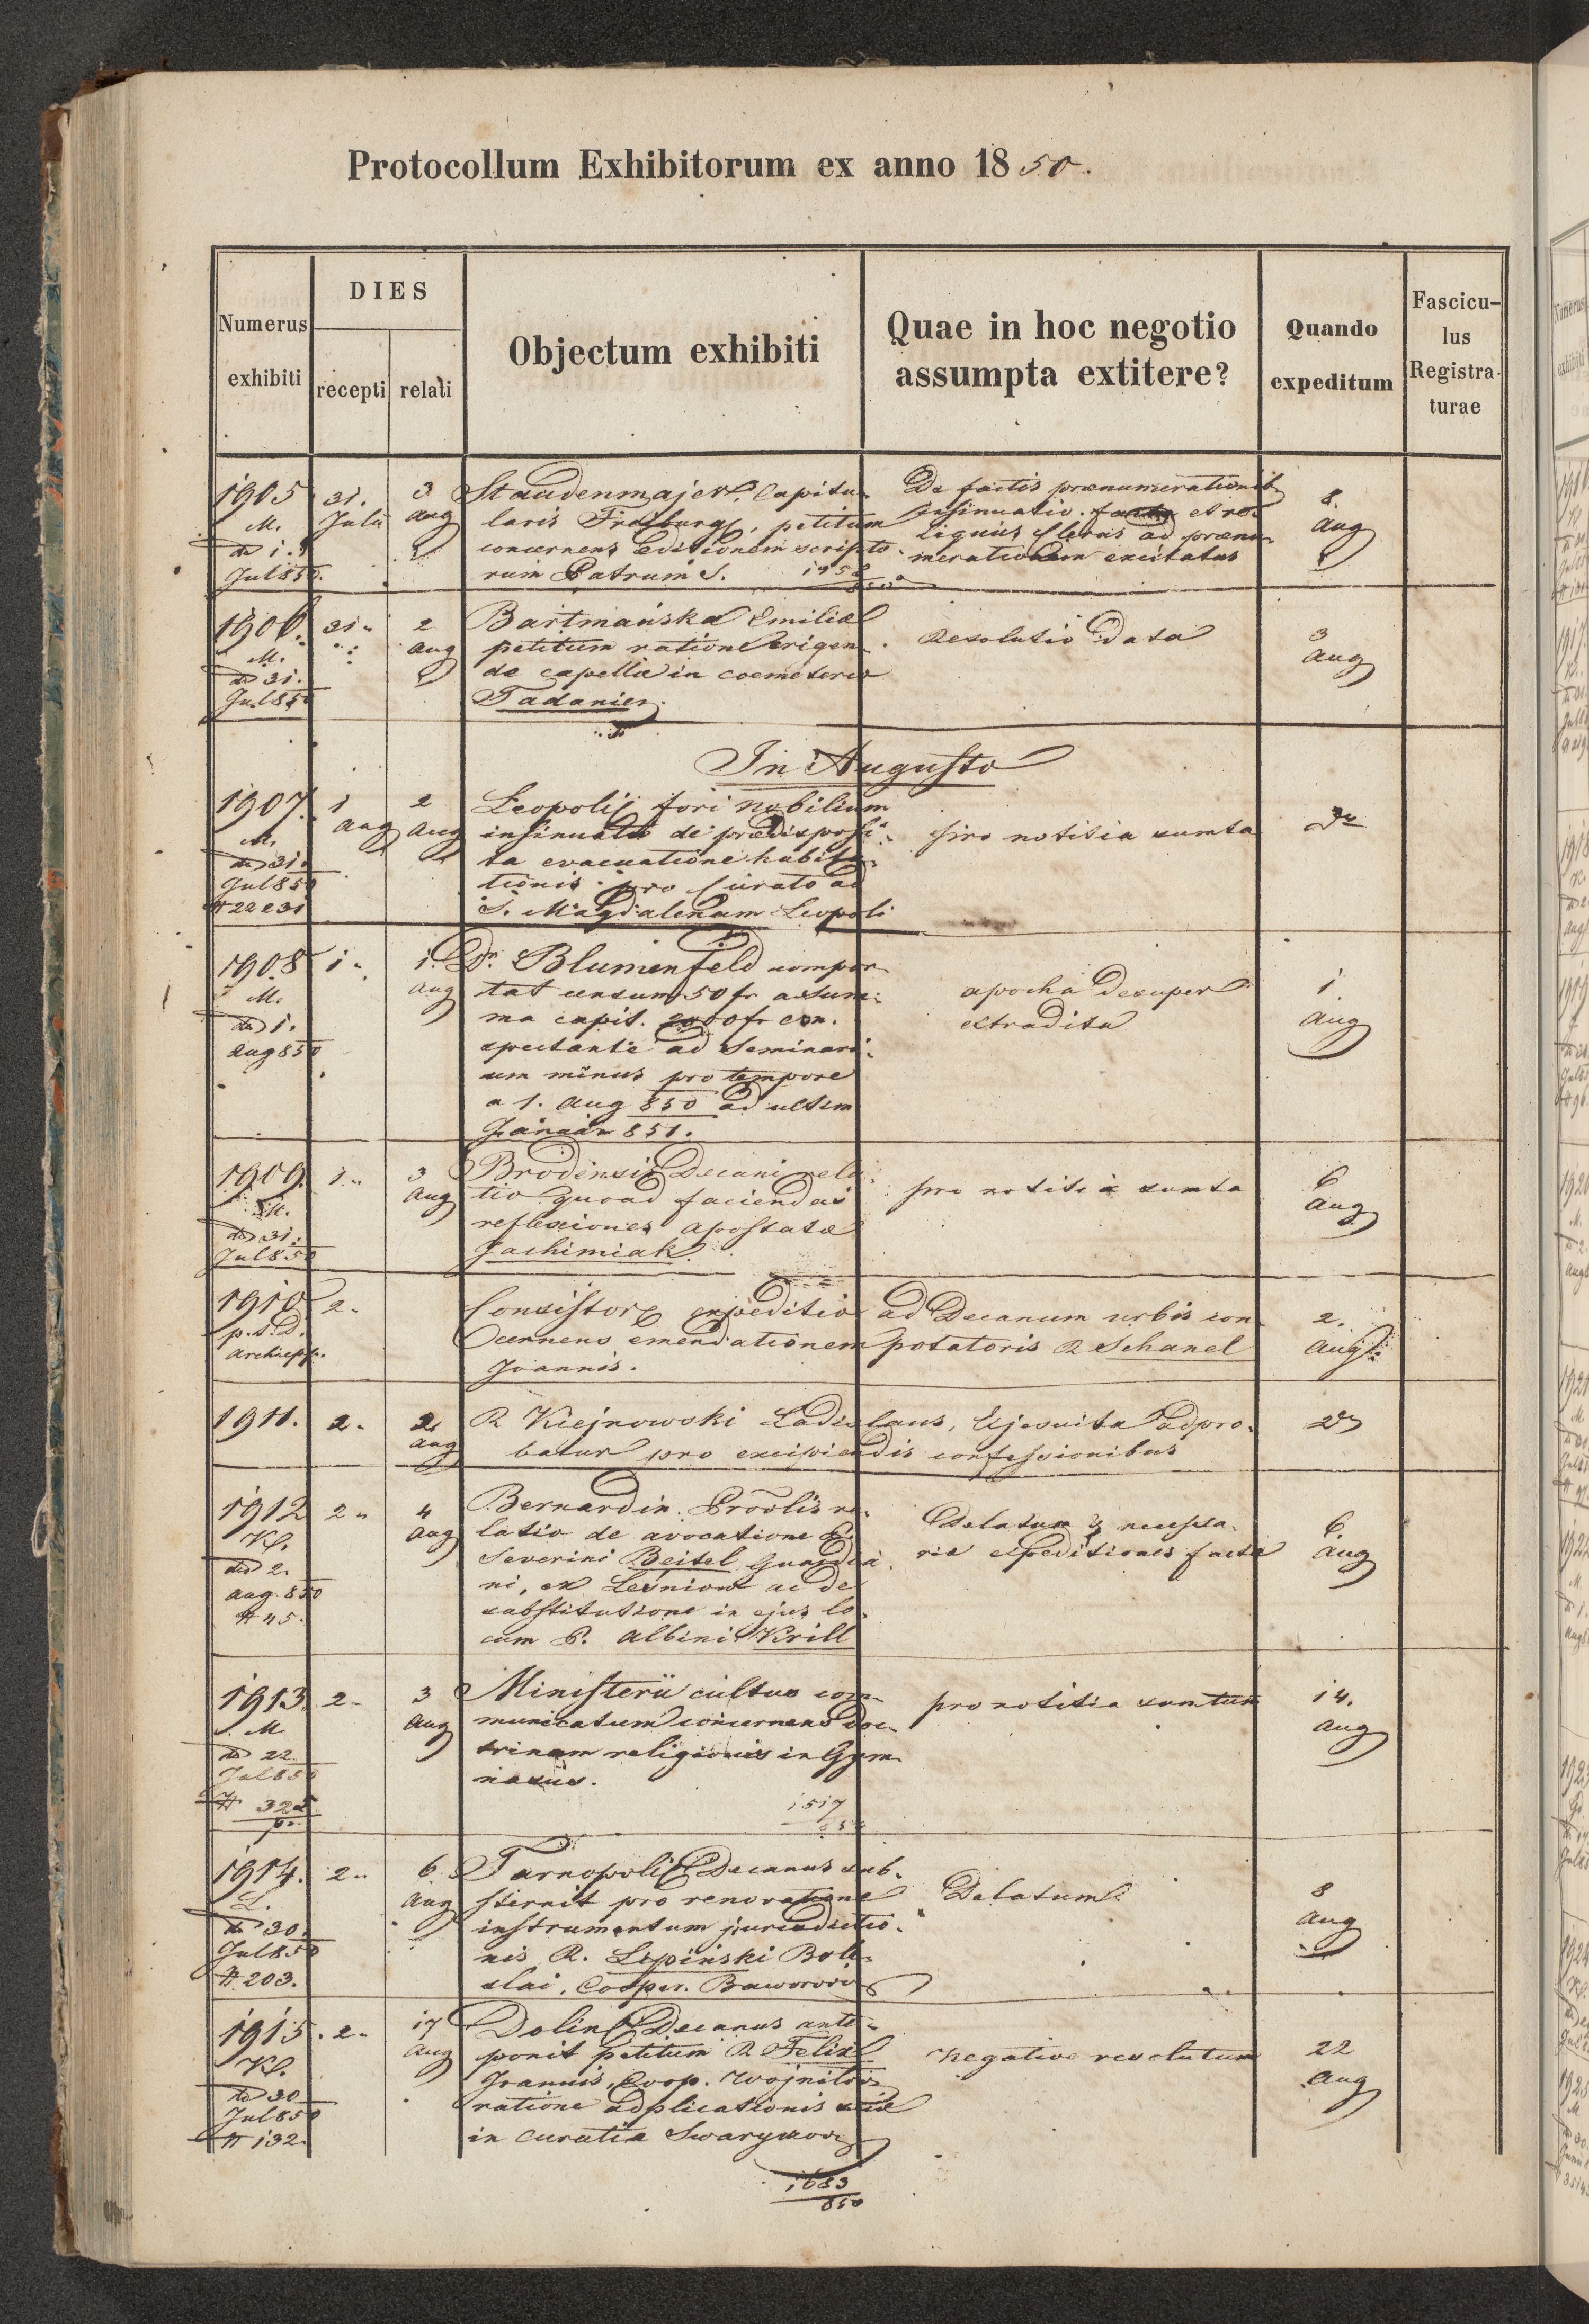 Protocollum Exhibitorum ex anno 1850.
Numerus exhibiti
DIES
recepti
relati
Objectum exhibiti
Quae in hoc negotio assumpta extitere?
Quando expeditum
Fascicu-
lus
Registra-
turae
1905
M.
Jul 850.
31.
Julii
3
Aug
Staudenmajer, Capitu-
laris Freiburg, petitum
concernens editionem scripto-
rum Patrum S.
De factis praenumerationib
insinuatio et re-
liquus Clerus ad praenu-
merationem excitatus
8.
Aug
1906.
M.
dd 31.
Jul 850
31.
2
Aug
Bartmańska Emilia
petitum ratione erigen-
da capella in coemeterio
Tadanier.
Resolutio data
3
Aug
In Augusto
1907.
M.
dd 31.
Jul 850
# 22e31
1
Aug
2
Aug
Leopoli fori nobilium
insinuatio de praedisposi-
ta evacuatione habita-
tionis pro Curato ad
S. Magdalenam Leopoli
pro notitia sumta
do
1908
M.
dd 1.
Aug 850
1.
1.
Aug
Dr. Blumenfeld compor-
tat censum 50 fr a sum-
ma capit. 2000 fr con.
spectante ad Seminari-
um minus pro tempore
a 1. Aug 850 ad ultim
Januar 851.
apocha desuper
extradita
1.
Aug
1909.
dd 31.
Jul 850
1.
3
Aug
Brodensis Decani rela-
tio quoad faciendas
reflexiones apostatae
Jachimiak.
pro notitia sumta
6
Aug
1910
p.s.D.
Archiepp.
2.
Consistor expeditio ad Decanum urbis con-
cernens emendationem potatoris R Schanel
Joannis.
2.
Aug
1911.
2.
2
Aug
R Kiejnowski Ladislaus, Exjesuita adpro-
batur pro excipiendis confessionibus
do
1912
Kl.
dd 2.
Aug. 850
# 45.
2.
4
Aug
Bernardin. Provlis re-
latio de avocatione P.
Severini Beitel Guardia-
ni, ex Leśniow ac de
substitutione in ejus lo-
cum P. Albini Krill
Delatum & necessa-
riae expeditiones factae
6.
Aug
1913.
M
dd 22.
Jul 850
# 325
2.
3
Aug
Ministerii cultus com-
municatum concernens doc-
trinam religionis in Gym-
nasiis.
1517
850
pro notitia sumtum
14.
Aug
1914.
L.
dd 30.
Jul 850
# 203.
2.
6.
Aug
Tarnopoli Decanus sub-
sternit pro renovatione
instrumentum jurisdictio-
nis R. Lepiński Bole-
slai, Cooper. Baworow
Delatum
8
Aug
1915.
Kl.
dd 30
Jul 850
# 132.
2.
17
Aug
Dolin Decanus ante-
ponit petitum R Felix
Joannis, Coop. Wojnilow
ratione adplicationis suae
in curatia Swaryczow
1683
850
Negative resolutum
22
Aug